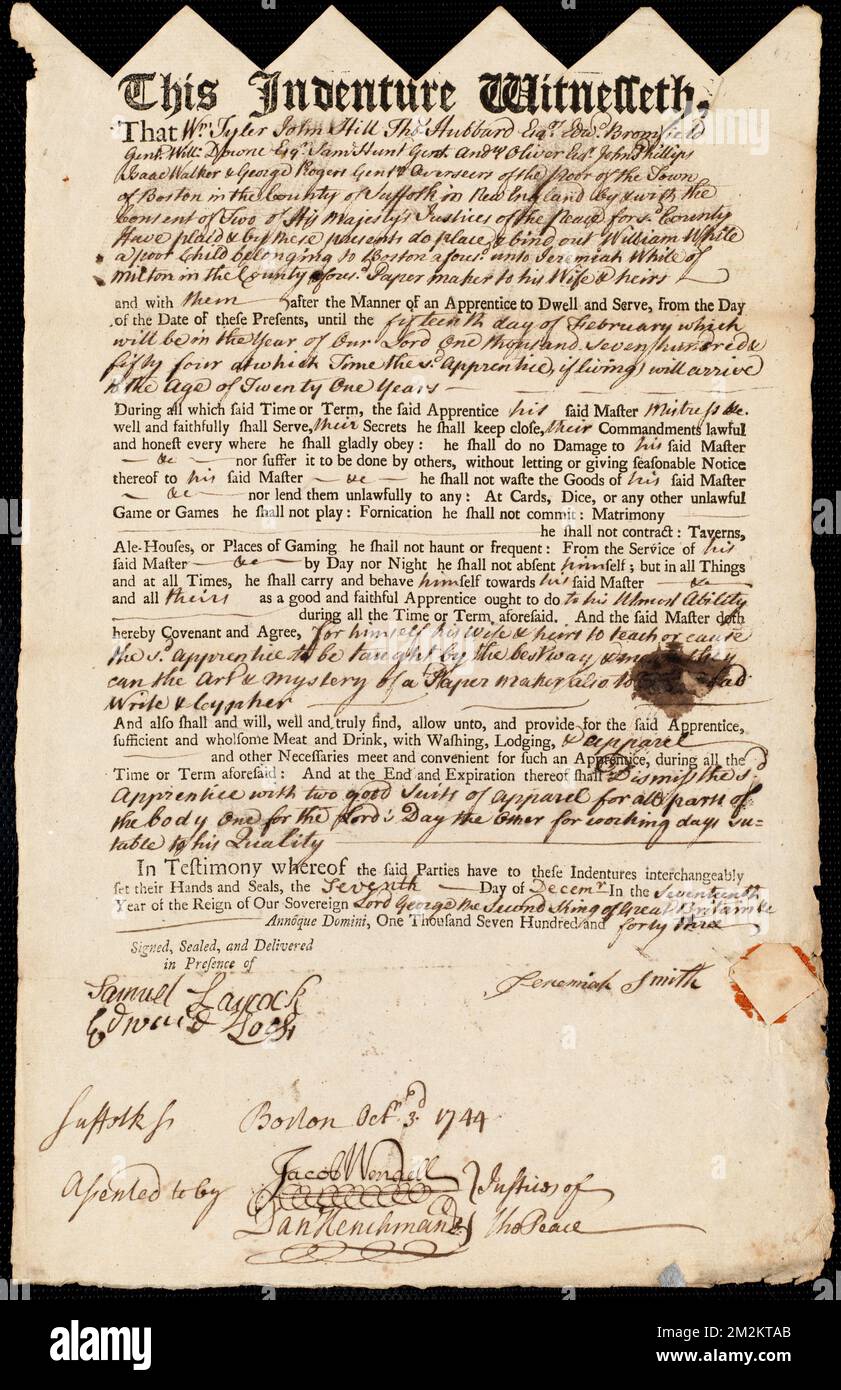 This Indenture Witnesseth,
That Wm. Tyler John Hill Thos. Hubbard Esqrs. Edwd. Bromfield
Gent. Willm. Downe Esqr. Saml. Hunt Gent. Andw. Oliver Esqr. John Phillips
Isaac Walker & George Rogers Gentn. Overseers of the Poor of the Town
of Boston in the County of Suffolk in New England by & with the
Consent of Two of His Majesty's Justices of the Peace for sd. County
Have placd & by these presents do place & bind out William White
a poor Child belonging to Boston aforesd. unto Jeremiah White of
Milton in the County aforesd. Paper maker to his Wife & heirs
and with them after the Manner of an Apprentice to Dwell and Serve, from the Day
of the Date of these Presents, until the fifteenth day of February which
will be in the Year of Our Lord One thousand Seven hundred &
fifty four at which Time the sd. Apprentice, if living will arrive
to the Age of Twenty One Years
During all which said Time or Term, the said Apprentice his said Master Mistress &c.
well and faithfully shall Serve, their Secrets he shall keep close, their Commandments lawful
and honest every where he shall gladly obey: he shall do no Damage to his said Master
&c nor suffer it to be done by others, without letting or giving seasonable Notice
thereof to his said Master &c he shall not waste the Goods of his said Master
&c nor lend them unlawfully to any: At Cards, Dice, or any other unlawful
Game or Games he shall not play: Fornication he shall not commit: Matrimony
he shall not contract: Taverns,
Ale-Houses, or Places of Gaming he shall not haunt or frequent: From the Service of his
said Master &c by Day nor Night he shall not absent himself; but in all Things
and at all Times, he shall carry and behave himself towards his said Master &c
and all theirs as a good and faithful Apprentice ought to do to his Utmost Ability
during all the Time or Term aforesaid. And the said Master doth
hereby Covenant and Agree, for himself his Wife & heirs to teach or cause
the sd. apprentice to be taught by the best way & they
can the Art & Mystery of a Paper maker also to
Write & Cypher
And also shall and will, well and truly find, allow unto, and provide for the said Apprentice,
sufficient and wholsome Meat and Drink, with Washing, Lodging, & apparel
and other Necessaries meet and convenient for such an Apprentice, during all the
Time or Term aforesaid: And at the End and Expiration thereof shall Dismiss the sd.
Apprentice with two good Suits of apparel for all parts of
the body One for the Lord's Day the Other for working days su=
table to his Quality
In Testimony whereof the said Parties have to these Indentures interchangeably
set their Hands and Seals, the Seventh Day of Decemr. In the Seventeenth
Year of the Reign of Our Sovereign Lord George the Second King of Great Britain &c
Annoque Domini, One Thousand Seven Hundred and forty three
Signed, Sealed, and Delivered
in Presence of
Samuel Laycock
Edward
Jeremiah Smith
Suffolk ss
Boston Octr. 3d 1744
Assented to by
Jacob Wendell
Danl Henchman
Justices of
the Peace
alamy
Image ID: 2M2KTAB
www.alamy.com